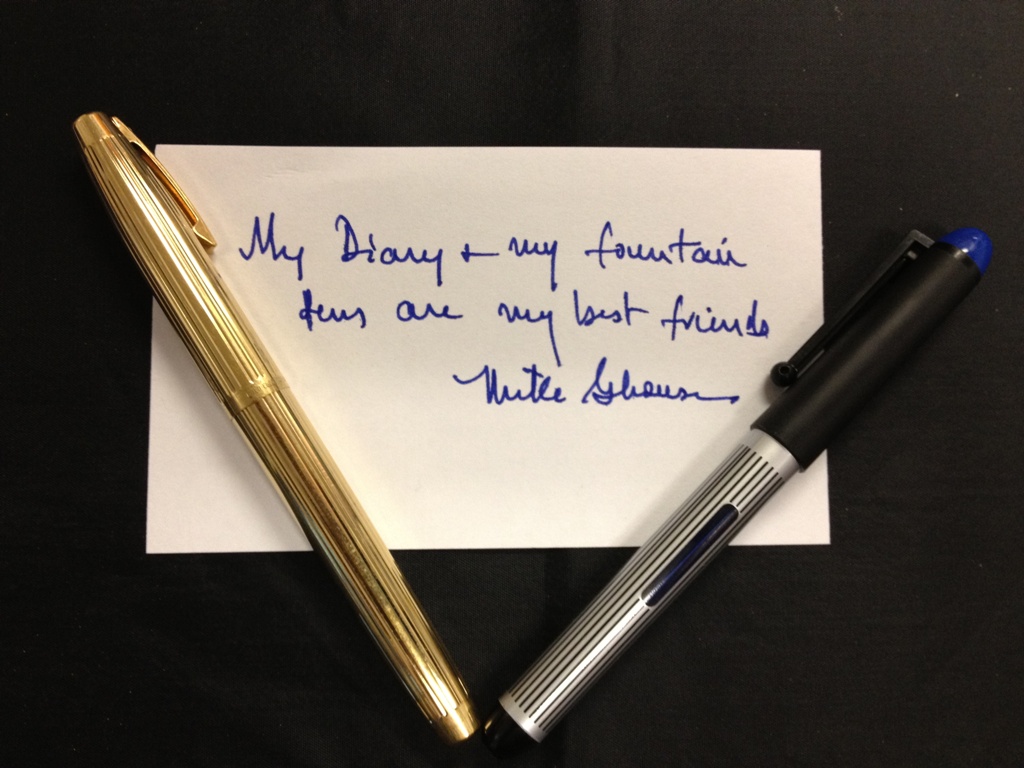 My Diary + my fountain
pens are my best friends
Mike Ghouse